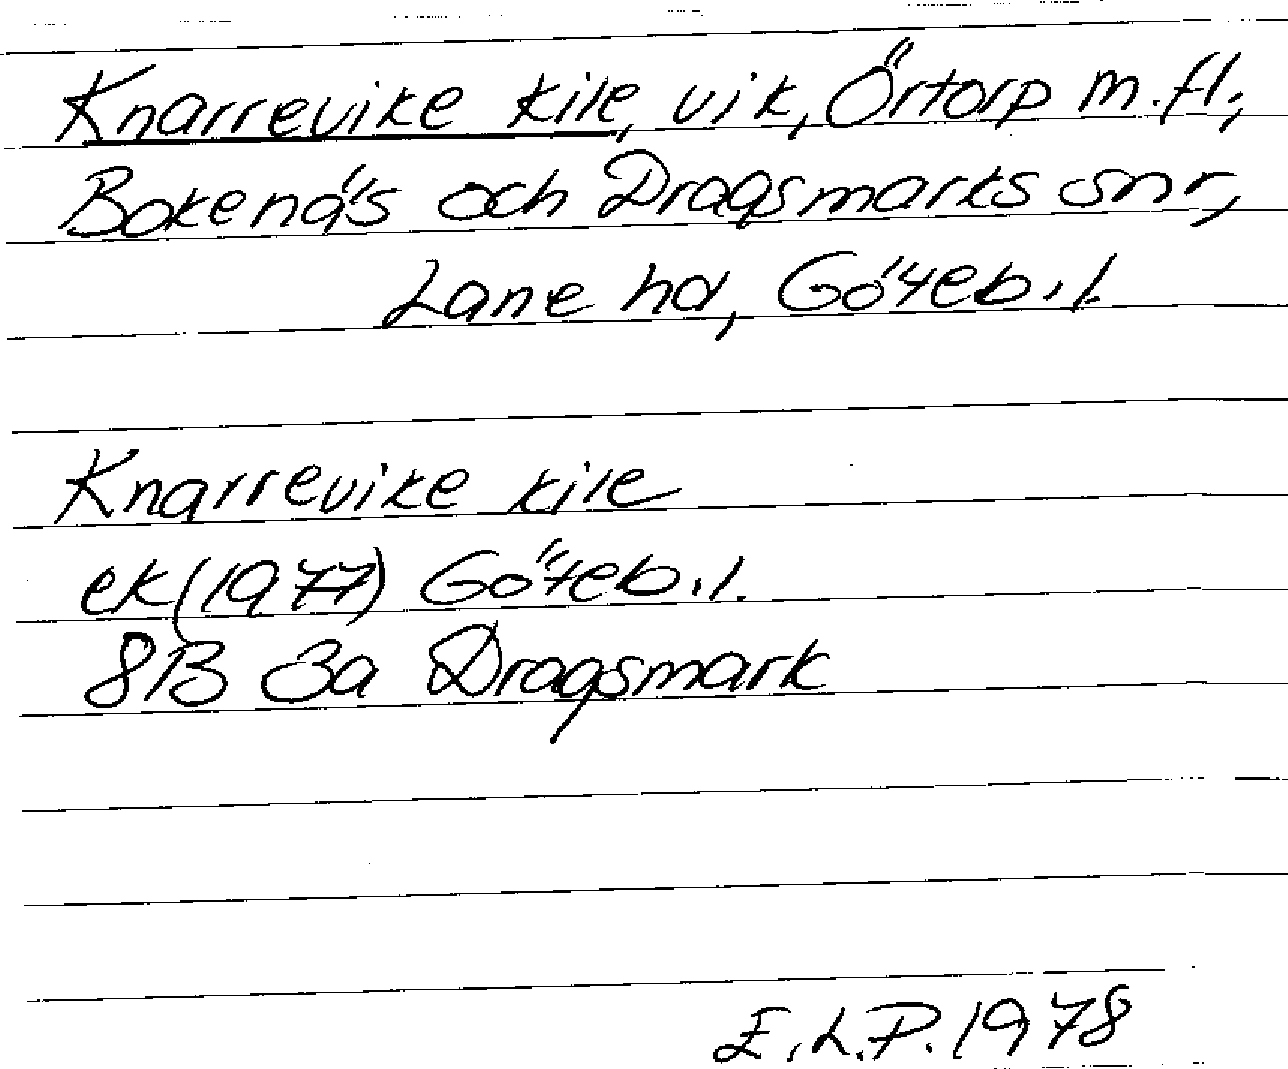 Knarrevike kile, vik, Örtorp m.fl.,
Bokenäs och Dragsmarks snr,
Lane hd, Göteb.l.
Knarrevike kile
ek(1977) Göteb.l.
8B 3a Dragsmark
E.L.P. 1978